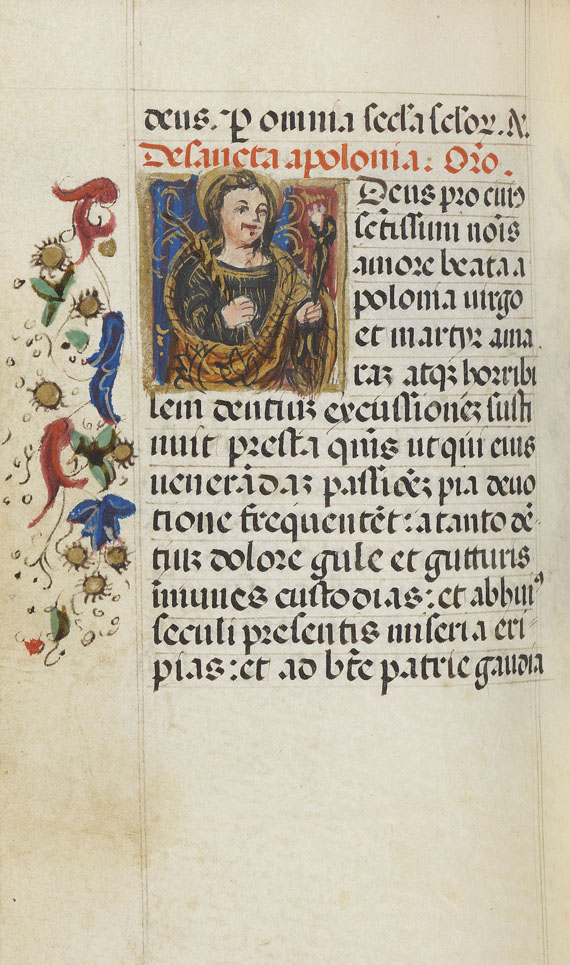 deus. P omnia secła sełoꝝ. A.
De sancta apolonia. Oro.
Deus pro cuiꝰ
sctissimi nois
amore beata a
polonia uirgo
et martyr ama
raꝫ atqꝫ horribi
lem dentiuꝫ excussioneꝫ susti
nuit presta qm̄s ut qui eius
uenerādaꝫ passiōeꝫ pia deuo
tione frequentēt: a tanto dē-
tiuꝫ dolore gule et gutturis
immunes custodias: et ab huiꝰ
seculi presentis miseria eri-
pias: et ad bt̄e patrie gaudia